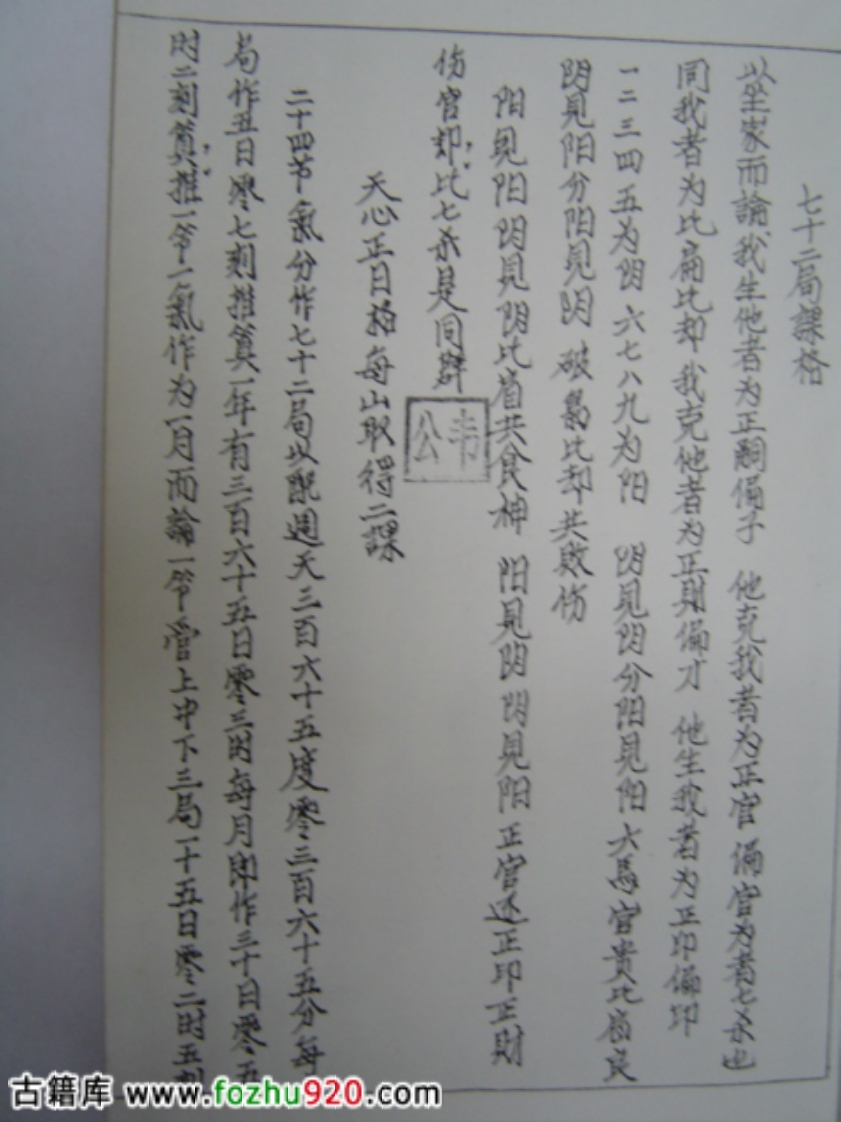 七十二局課格
以坐家而論我生他者为正嗣偏子 他克我者为正官 偏官为者七杀也
同我者为比肩比却 我克他者为正財偏才 他生我者为正印偏印
一二三四五为阴 六七八九为阳 阴見阴分阳見阳 六馬官贵比肩良
阴見阳分阳見阴 破鸟比却共败伤
阳見阳阴見阴比肩共食神 阳見阴阴見阳正官还正印正財
伤官却比七杀是同群
韦公
天心正日格每山取得二課
二十四节氣分作七十二局以配週天三百六十五度零三百六十五分每
局作五日零七刻推算一年有三百六十五日零三时每月即作三十日零五
时二刻算推一节一氣作为一月而論一节管上中下三局一十五日零二时五刻
古籍库 www.fozhu920.com